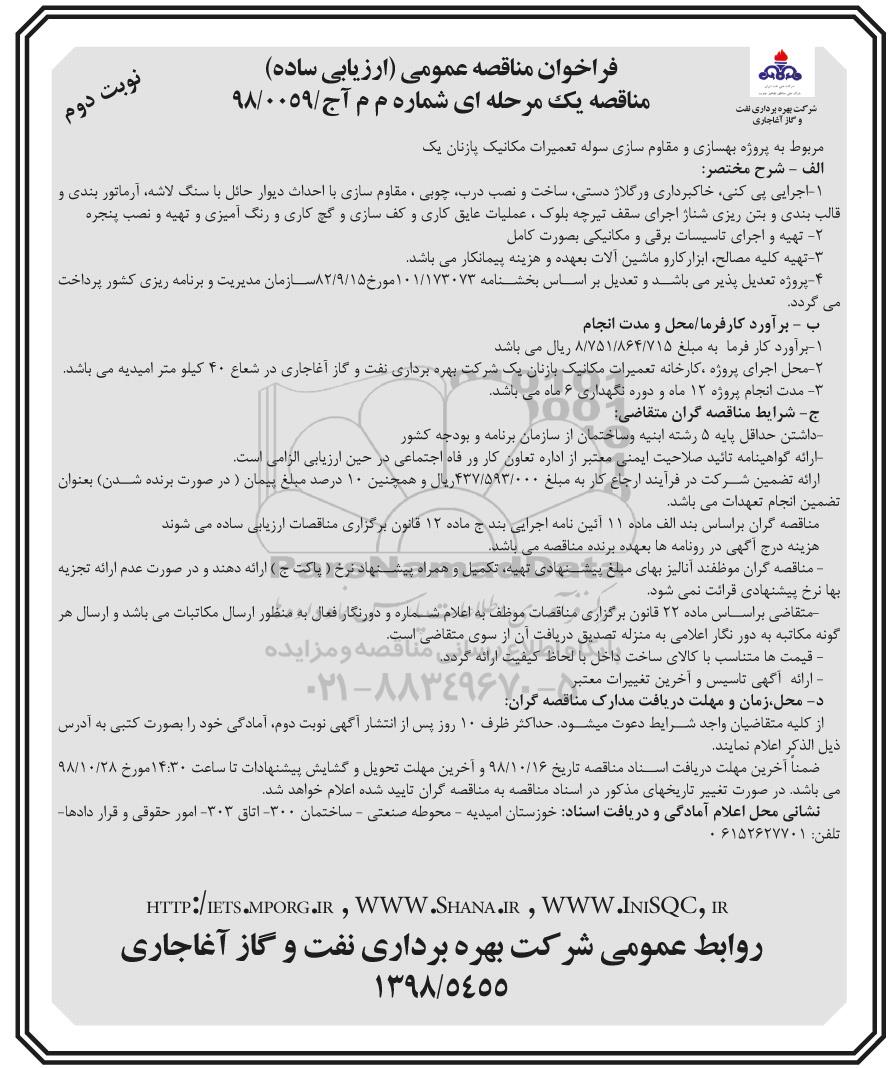 فراخوان مناقصه عمومی (ارزیابی ساده)
مناقصه یک مرحله ای شماره م م آج/۹۸/۰۰۵۹
نوبت دوم
شرکت بهره برداری نفت
و گاز آغاجاری
مربوط به پروژه بهسازی و مقاوم سازی سوله تعمیرات مکانیک پازنان یک
الف - شرح مختصر:
۱-اجرایی پی کنی، خاکبرداری ورگلاژ دستی، ساخت و نصب درب، چوبی ، مقاوم سازی با احداث دیوار حائل با سنگ لاشه، آرماتور بندی و
قالب بندی و بتن ریزی شناژ اجرای سقف تیرچه بلوک ، عملیات عایق کاری و کف سازی و گچ کاری و رنگ آمیزی و تهیه و نصب پنجره
۲- تهیه و اجرای تاسیسات برقی و مکانیکی بصورت کامل
۳-تهیه کلیه مصالح، ابزارکارو ماشین آلات بعهده و هزینه پیمانکار می باشد.
۴-پروژه تعدیل پذیر می باشد و تعدیل بر اساس بخشنامه ۱۰۱/۱۷۳۰۷۳مورخ۸۲/۹/۱۵سازمان مدیریت و برنامه ریزی کشور پرداخت
می گردد.
ب - برآورد کارفرما/محل و مدت انجام
۱-برآورد کار فرما به مبلغ ۸/۷۵۱/۸۶۴/۷۱۵ ریال می باشد
۲-محل اجرای پروژه ،کارخانه تعمیرات مکانیک بازنان یک شرکت بهره برداری نفت و گاز آغاجاری در شعاع ۴۰ کیلو متر امیدیه می باشد.
۳- مدت انجام پروژه ۱۲ ماه و دوره نگهداری ۶ ماه می باشد.
ج- شرایط مناقصه گران متقاضی:
-داشتن حداقل پایه ۵ رشته ابنیه وساختمان از سازمان برنامه و بودجه کشور
-ارائه گواهینامه تائید صلاحیت ایمنی معتبر از اداره تعاون کار ور فاه اجتماعی در حین ارزیابی الزامی است.
ارائه تضمین شرکت در فرآیند ارجاع کار به مبلغ ۴۳۷/۵۹۳/۰۰۰ریال و همچنین ۱۰ درصد مبلغ پیمان ( در صورت برنده شدن) بعنوان
تضمین انجام تعهدات می باشد.
مناقصه گران براساس بند الف ماده ۱۱ آئین نامه اجرایی بند ج ماده ۱۲ قانون برگزاری مناقصات ارزیابی ساده می شوند
هزینه درج آگهی در رونامه ها بعهده برنده مناقصه می باشد.
- مناقصه گران موظفند آنالیز بهای مبلغ پیشنهادی تهیه، تکمیل و همراه پیشنهاد نرخ ( پاکت ج ) ارائه دهند و در صورت عدم ارائه تجزیه
بها نرخ پیشنهادی قرائت نمی شود.
-متقاضی براساس ماده ۲۲ قانون برگزاری مناقصات موظف به اعلام شماره و دورنگار فعال به منظور ارسال مکاتبات می باشد و ارسال هر
گونه مکاتبه به دور نگار اعلامی به منزله تصدیق دریافت آن از سوی متقاضی است.
- قیمت ها متناسب با کالای ساخت داخل با لحاظ کیفیت ارائه گردد.
- ارائه آگهی تاسیس و آخرین تغییرات معتبر
د- محل،زمان و مهلت دریافت مدارک مناقصه گران:
از کلیه متقاضیان واجد شرایط دعوت میشود. حداکثر ظرف ۱۰ روز پس از انتشار آگهی نوبت دوم، آمادگی خود را بصورت کتبی به آدرس
ذیل الذکر اعلام نمایند.
ضمناً آخرین مهلت دریافت اسناد مناقصه تاریخ ۹۸/۱۰/۱۶ و آخرین مهلت تحویل و گشایش پیشنهادات تا ساعت ۱۴:۳۰مورخ ۹۸/۱۰/۲۸
می باشد. در صورت تغییر تاریخهای مذکور در اسناد مناقصه به مناقصه گران تایید شده اعلام خواهد شد.
نشانی محل اعلام آمادگی و دریافت اسناد: خوزستان امیدیه - محوطه صنعتی - ساختمان ۳۰۰- اتاق ۳۰۳- امور حقوقی و قرار دادها-
تلفن: ۶۱۵۲۶۲۷۷۰۱ ۰
HTTP:/IETS.MPORG.IR , WWW.SHANA.IR , WWW.INISQC, IR
روابط عمومی شرکت بهره برداری نفت و گاز آغاجاری
۱۳۹۸/۵۴۵۵
ParsNamadData
پایگاه اطلاع رسانی مناقصه و مزایده
۰۲۱-۸۸۳۴۹۶۷۰-۵